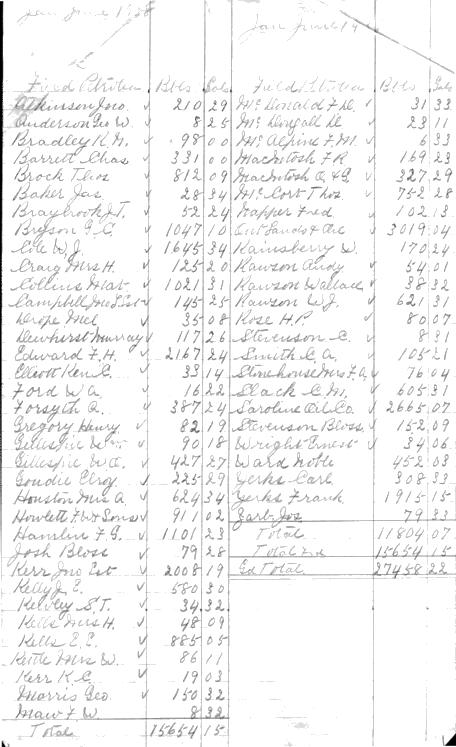 Jan June 1938
Field Petrolea Bbls Gals
Atkinson Jno. 210 29
Anderson Geo W. 8 25
Bradley R.N. 98 00
Barrett Chas 331 00
Brock Thos 812 09
Baker Jas. 28 34
Braybrook J.T. 52 24
Bryson G.C. 1047 10
Coll W.J. 1645 34
Craig Mrs H. 125 20
Collins Mat. 1021 31
Campbell Jno Est 145 25
Drope Mel 35 08
Dewhirst Murray 117 26
Edward F.H. 2167 24
Elliott Ken C. 33 14
Ford W.A. 16 22
Forsyth A. 387 24
Gregory Henry 82 19
Gillespie Wm. 90 18
Gillespie W.A. 427 27
Goudie Elroy 225 29
Houston Mrs A 624 34
Howlett F.W & Sons 911 02
Hamlin F.G. 1101 23
Josh Bloss 79 28
Kerr Jno Est 2008 19
Kelly J.E. 580 30
Kelvey S.T. 34 32
Kells Mrs H. 48 09
Kells E.E. 885 05
Kettle Mrs W. 86 11
Kerr K.C. 19 03
Morris Geo 150 32
Maw F.W. 8 32
Total 15654 15
Jan June 19
Field Petrolea Bbls Gals
McDonald F.D. 31 33
McDougall D 23 11
McAlpine F.M. 6 33
MacIntosh F.R. 169 23
MacIntosh O. & G. 327 29
McCort Thos 752 28
Napper Fred 102 13
Oil Sands & Oil 3019 04
Rainsberry W. 170 24
Rawson Andy 54 01
Rawson Wallace 38 32
Rawson W.J. 621 31
Rose H.P. 80 07
Stevenson C. 8 31
Smith C.A. 105 21
Stonehouse Mrs F.A. 76 04
Slack C.M. 605 31
Saroline Oil Co. 2665 07
Stevenson Bloss 152 09
Wright Ernest 34 06
Ward Noble 452 03
Yerks Carl 308 33
Yerks Frank 1915 15
Zarb Jos 79 33
Total 11804 07
Total Fwd 15654 15
Gd Total 27458 22